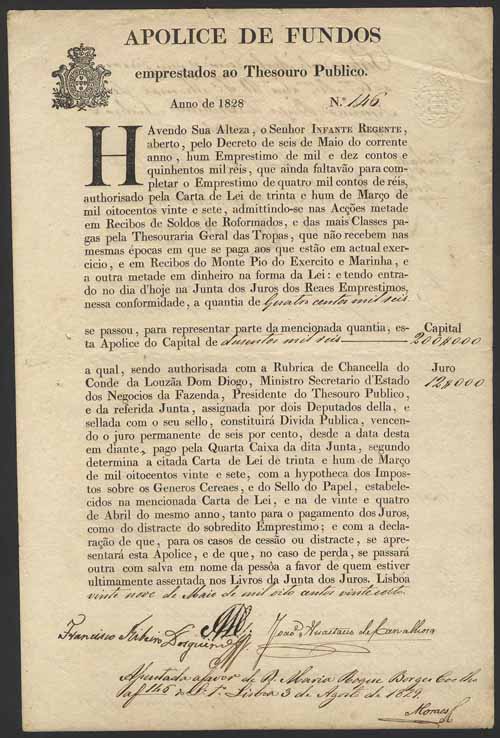 APOLICE DE FUNDOS
emprestados ao Thesouro Publico.
Anno de 1828 N.º 146
HAvendo Sua Alteza, o Senhor INFANTE REGENTE,
aberto, pelo Decreto de seis de Maio do corrente
anno, hum Emprestimo de mil e dez contos e
quinhentos mil réis, que ainda faltavão para com-
pletar o Emprestimo de quatro mil contos de réis,
authorisado pela Carta de Lei de trinta e hum de Março de
mil oitocentos vinte e sete, admittindo-se nas Acções metade
em Recibos de Soldos de Roformados, e das mais Classes pa-
gas pela Thesouraria Geral das Tropas, que não recebem nas
mesmas épocas em que se paga aos que estão em actual exer-
cicio, e em Recibos do Monte Pio do Exercito e Marinha, e
a outra metade em dinheiro na forma da Lei: e tendo entra-
do no dia d'hoje na Junta dos Juros dos Reaes Emprestimos,
nessa conformidade, a quantia de Quatro centos mil reis
se passou, para representar parte da mencionada quantia, es-
ta Apolice do Capital de duzentos mil reis
Capital
200$000
a qual, sendo authorisada com a Rubrica de Chancella do
Conde da Louzãa Dom Diogo, Ministro Secretario d'Estado
dos Negocios da Fazenda, Presidente do Thesouro Publico,
e da referida Junta, assignada por dois Deputados della, e
sellada com o seu sello, constituirá Divida Publica, vencen-
do o juro permanente de seis por cento, desde a data desta
em diante, pago pela Quarta Caixa da dita Junta, segundo
determina a citada Carta de Lei de trinta e hum de Março
de mil oitocentos vinte e sete, com a hypotheca dos Impos-
tos sobre os Generos Cereaes, e do Sello do Papel, estabele-
cidos na mencionada Carta de Lei, e na de vinte e quatro
de Abril do mesmo anno, tanto para o pagamento dos Juros,
como do distracte do sobredito Emprestimo; e com a declara-
ção de que, para os casos de cessão ou distracte, se apre-
sentará esta Apolice, e de que, no caso de perda, se passará
outra com salva em nome da pessôa a favor de quem estiver
ultimamente assentada nos Livros da Junta dos Juros. Lisboa
Juro
12$000
vinte nove de Maio de mil oito centos vinte e oito
Francisco Ribeiro
João Anastacio de Carvalhosa
Assentada a favor de D. Maria Roque Borges Coelho
a f 145 do L.º 1.º Lisboa 3 de Agosto de 1829
Moraes